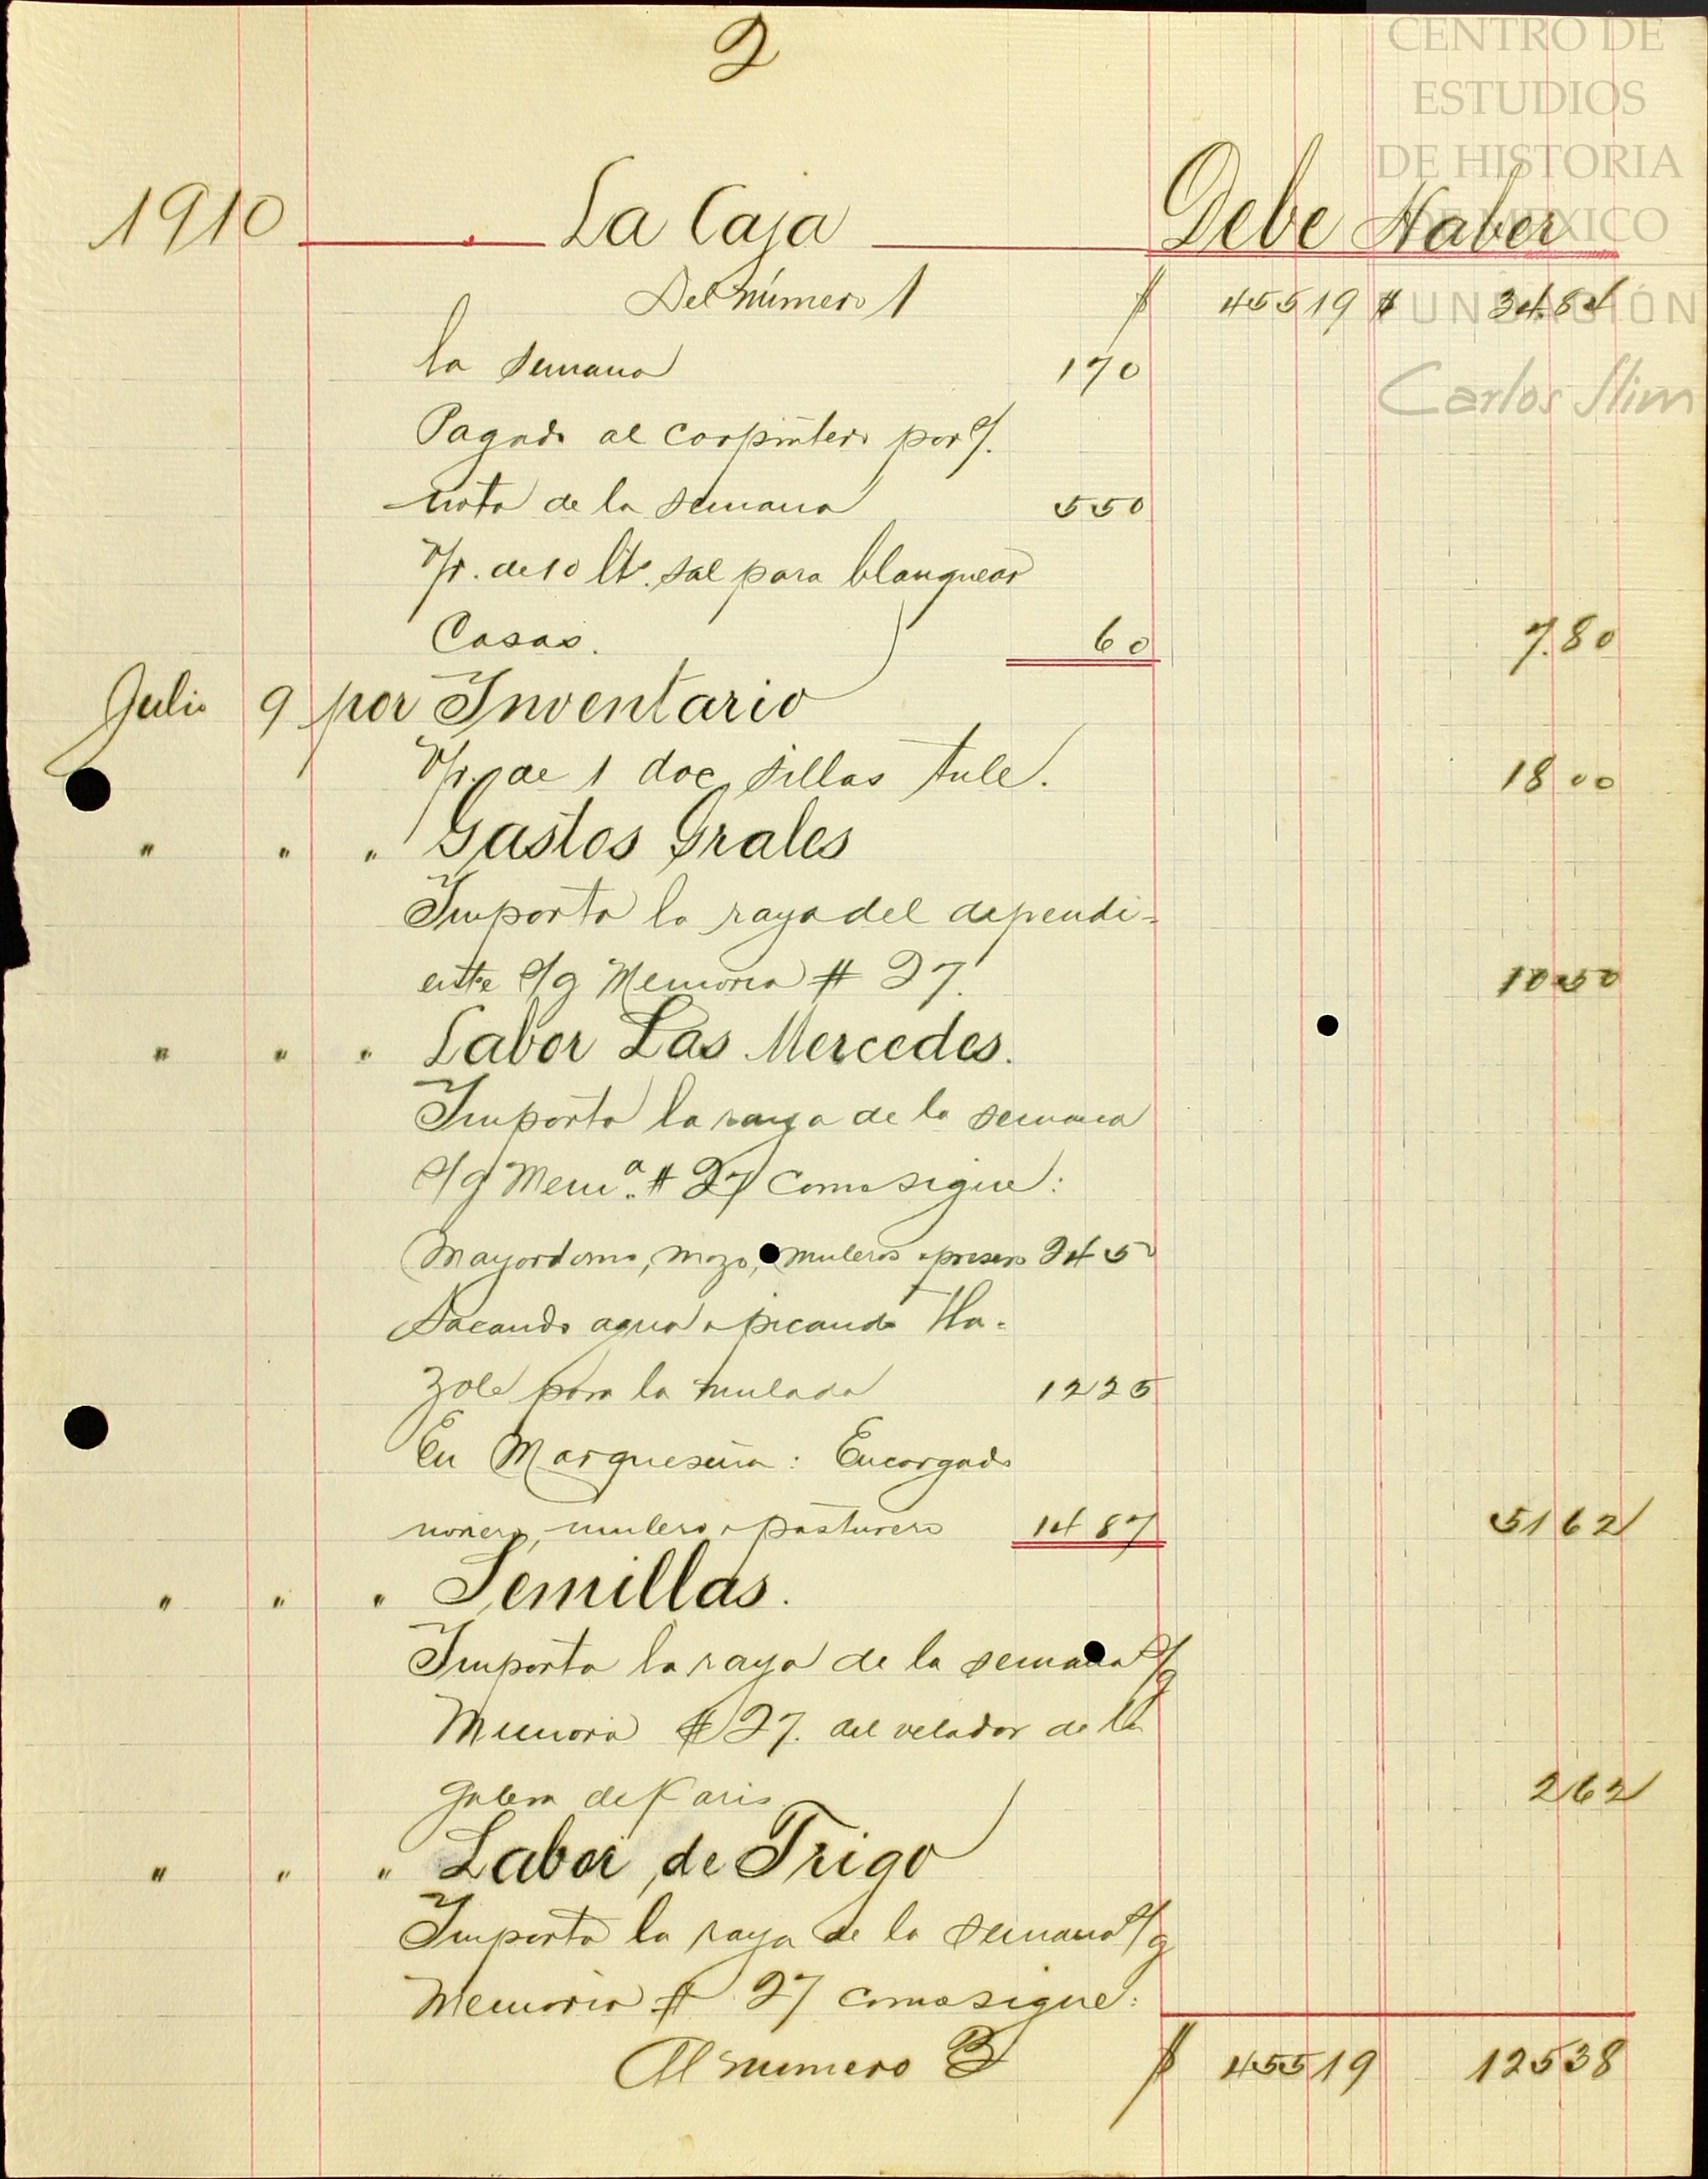 2
CENTRO DE
ESTUDIOS
DE HISTORIA
DE MEXICO
FUNDACIÓN
Carlos Slim
1910 La Caja Debe Haber
Del número 1 $ 455 19 $ 34.84
la semana 1 70
Pagado al carpintero por s/.
nota de la semana 5 50
V/r. de 10 lts. sal para blanquear
Casas. 60 7.80
Julio 9 por Inventario
V/r. de 1 doc sillas tule. 18 00
" " " Gastos Grales
Importa la raya del dependi=
ente s/g Memoria # 27. 10 50
" " " Labor Las Mercedes.
Importa la raya de la semana
s/g Mem.a # 27 como sigue:
Mayordomo, mozo, muleros 24 50
Sacando agua picando tla-
zole para la mulada 12 25
En Marqueseña: Encargado
noriero, mulero pasturero 14 87 51 62
" " " Semillas.
Importa la raya de la semana s/g
Memoria # 27. del velador de la
galera de Karis 2 62
" " " Labor de Trigo
Importa la raya de la semana s/g
Memoria # 27 como sigue:
Al número 3 $ 455 19 125 38